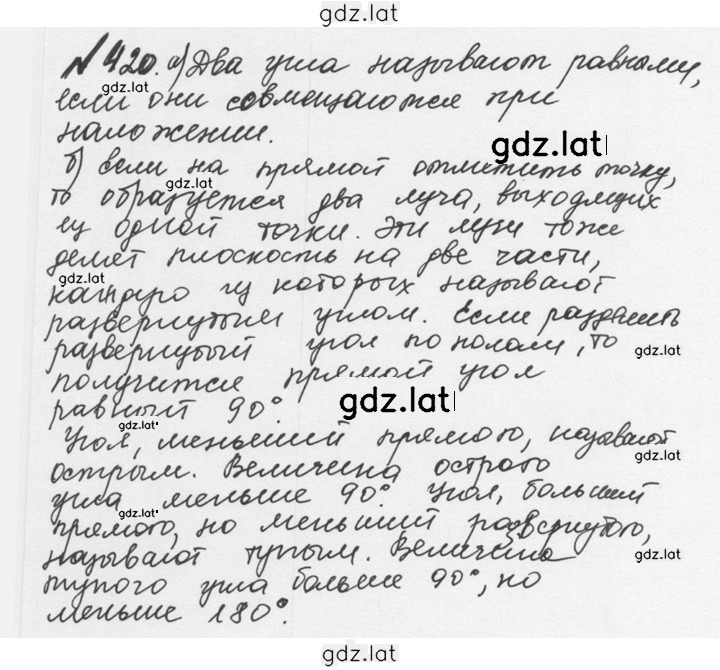 gdz.lat
№420. а) Два угла называют равными,
gdz.lat
если они совмещаются при
наложении.
gdz.lat
б) если на прямой отметить точку,
gdz.lat
то образуется два луча, выходящих
из одной точки. Эти лучи тоже
делят плоскость на две части,
gdz.lat
каждую из которых называют
развернутым углом. Если разделить
развернутый угол пополам, то
gdz.lat
получится прямой угол
равный 90°.
gdz.lat
gdz.lat
Угол, меньший прямого, называют
gdz.lat
острым. Величина острого
угла меньше 90°. Угол, больший
gdz.lat
прямого, но меньший развернутого,
называют тупым. Величина
gdz.lat
тупого угла больше 90°, но
меньше 180°.
gdz.lat